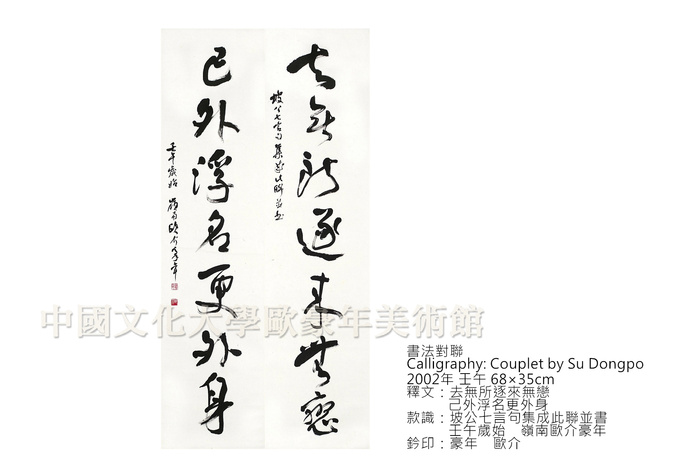 去無所逐來無戀
坡公七言句集成此聯並書
已外浮名更外身
壬午歲始 嶺南歐介豪年
中國文化大學歐豪年美術館
書法對聯
Calligraphy: Couplet by Su Dongpo
2002年 壬午 68×35cm
釋文：去無所逐來無戀
己外浮名更外身
款識：坡公七言句集成此聯並書
壬午歲始 嶺南歐介豪年
鈐印：豪年 歐介